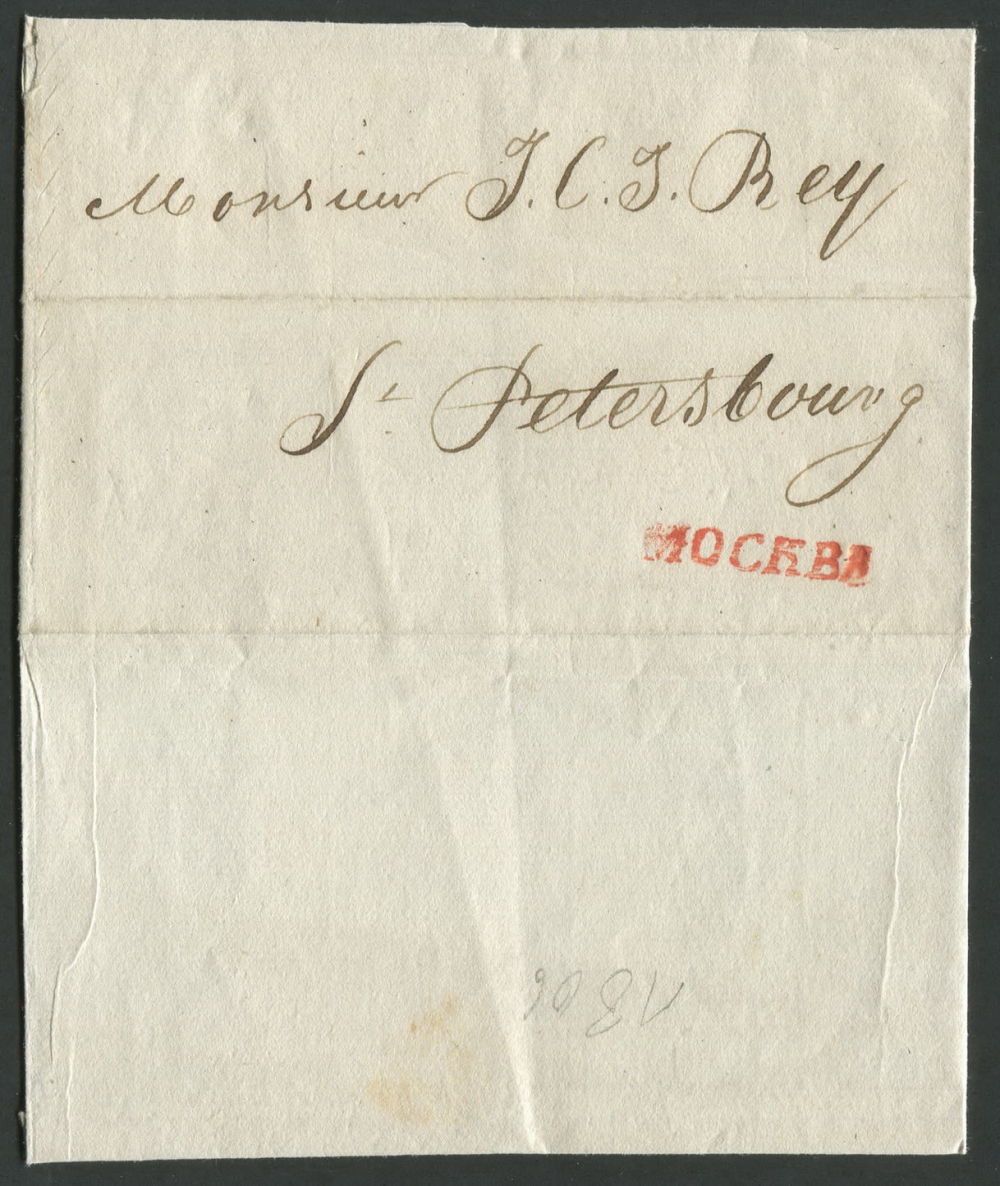 Monsieur J. C. J. Rey
St Petersbourg
МОСКВА
1806